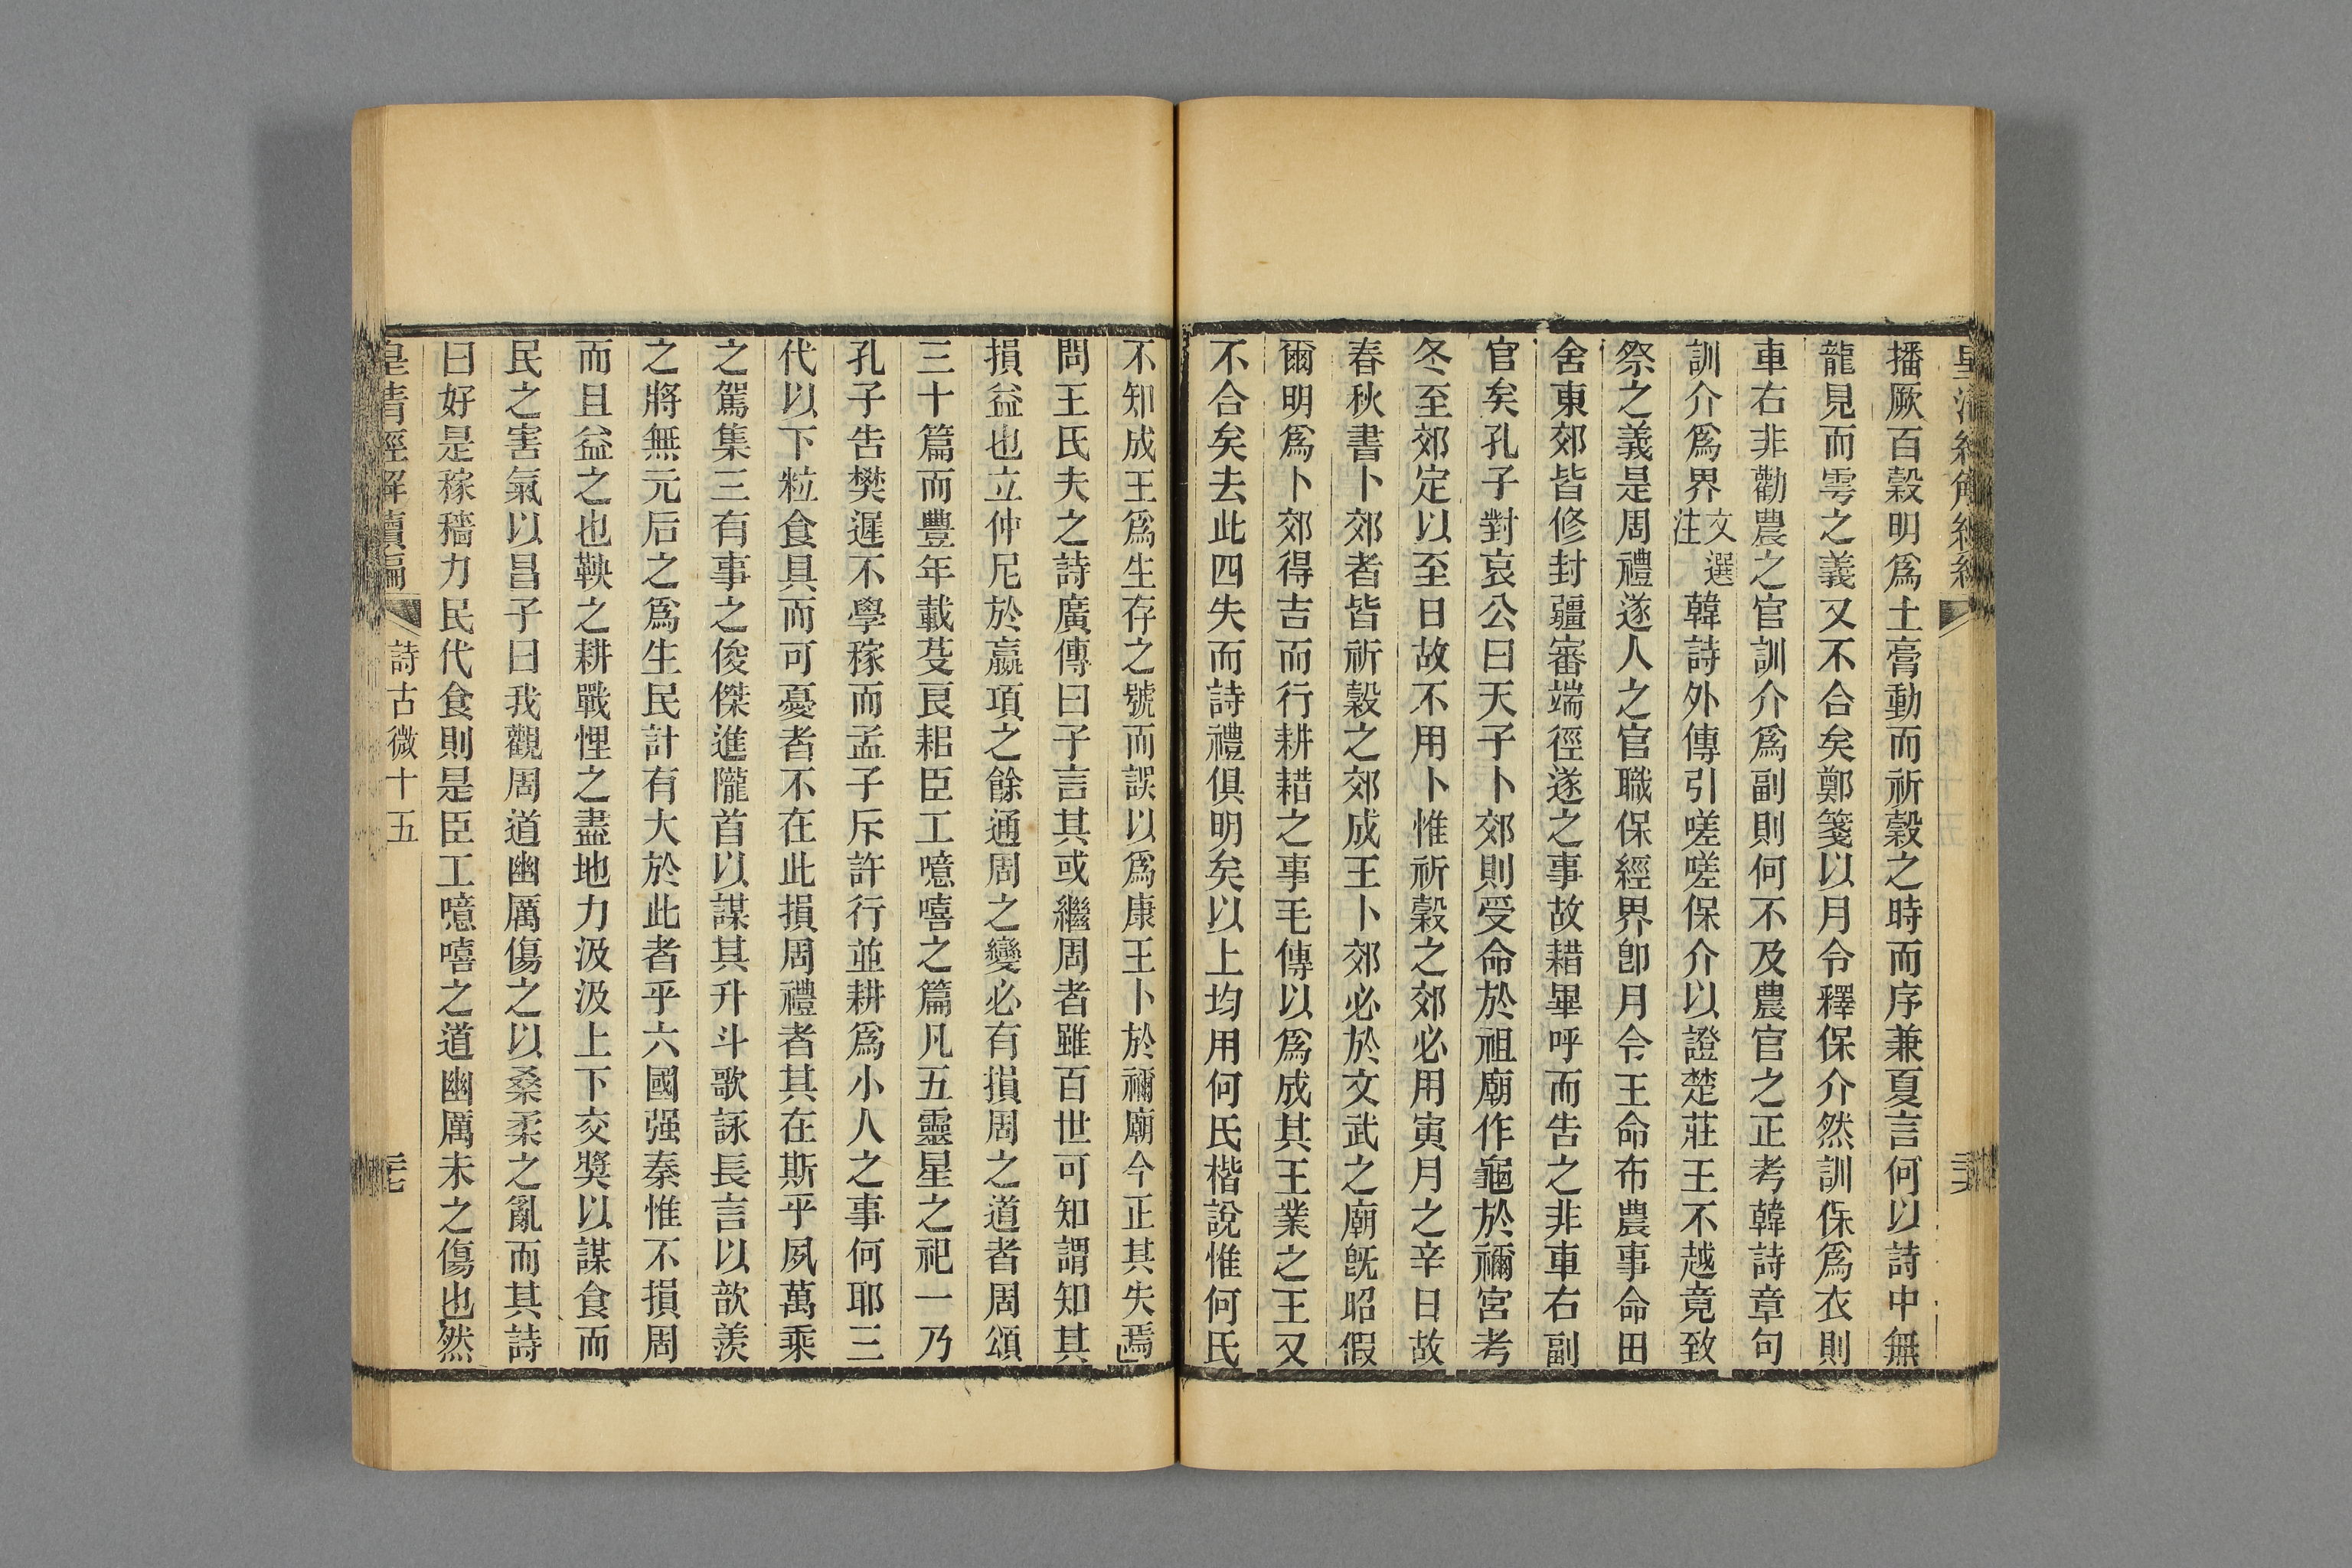 播厥百穀明爲土膏動而祈穀之時而序兼夏言何以詩中無
龍見而雩之義又不合矣鄭箋以月令釋保介然訓保爲衣則
車右非勸農之官訓介爲副則何不及農官之正考韓詩章句
訓介爲界文選注韓詩外傳引嗟嗟保介以證楚莊王不越竟致
祭之義是周禮遂人之官職保經界卽月令王命布農事命田
舍東郊皆修封疆審端徑遂之事故耤畢呼而告之非車右副
官矣孔子對哀公曰天子卜郊則受命於祖廟作龜於禰宮考
冬至郊定以至日故不用卜惟祈穀之郊必用寅月之辛日故
春秋書卜郊者皆祈穀之郊成王卜郊必於文武之廟旣昭假
爾明爲卜郊得吉而行耕耤之事毛傳以爲成其王業之王又
不合矣去此四失而詩禮俱明矣以上均用何氏楷說惟何氏
不知成王爲生存之號而誤以爲康王卜於禰廟今正其失焉
問王氏夫之詩廣傳曰子言其或繼周者雖百世可知謂知其
損益也立仲尼於嬴項之餘通周之變必有損周之道者周頌
三十篇而豐年載芟良耜臣工噫嘻之篇凡五靈星之祀一乃
孔子告樊遲不學稼而孟子斥許行並耕爲小人之事何耶三
代以下粒食具而可憂者不在此損周禮者其在斯乎夙萬乘
之駕集三有事之俊傑進隴首以謀其升斗歌詠長言以歆羨
之將無元后之爲生民計有大於此者乎六國强秦惟不損周
而且益之也鞅之耕戰悝之盡地力汲汲上下交獎以謀食而
民之害氣以昌子曰我觀周道幽厲傷之以桑柔之亂而其詩
曰好是稼穡力民代食則是臣工噫嘻之道幽厲未之傷也然
皇清經解續編
詩古微十五